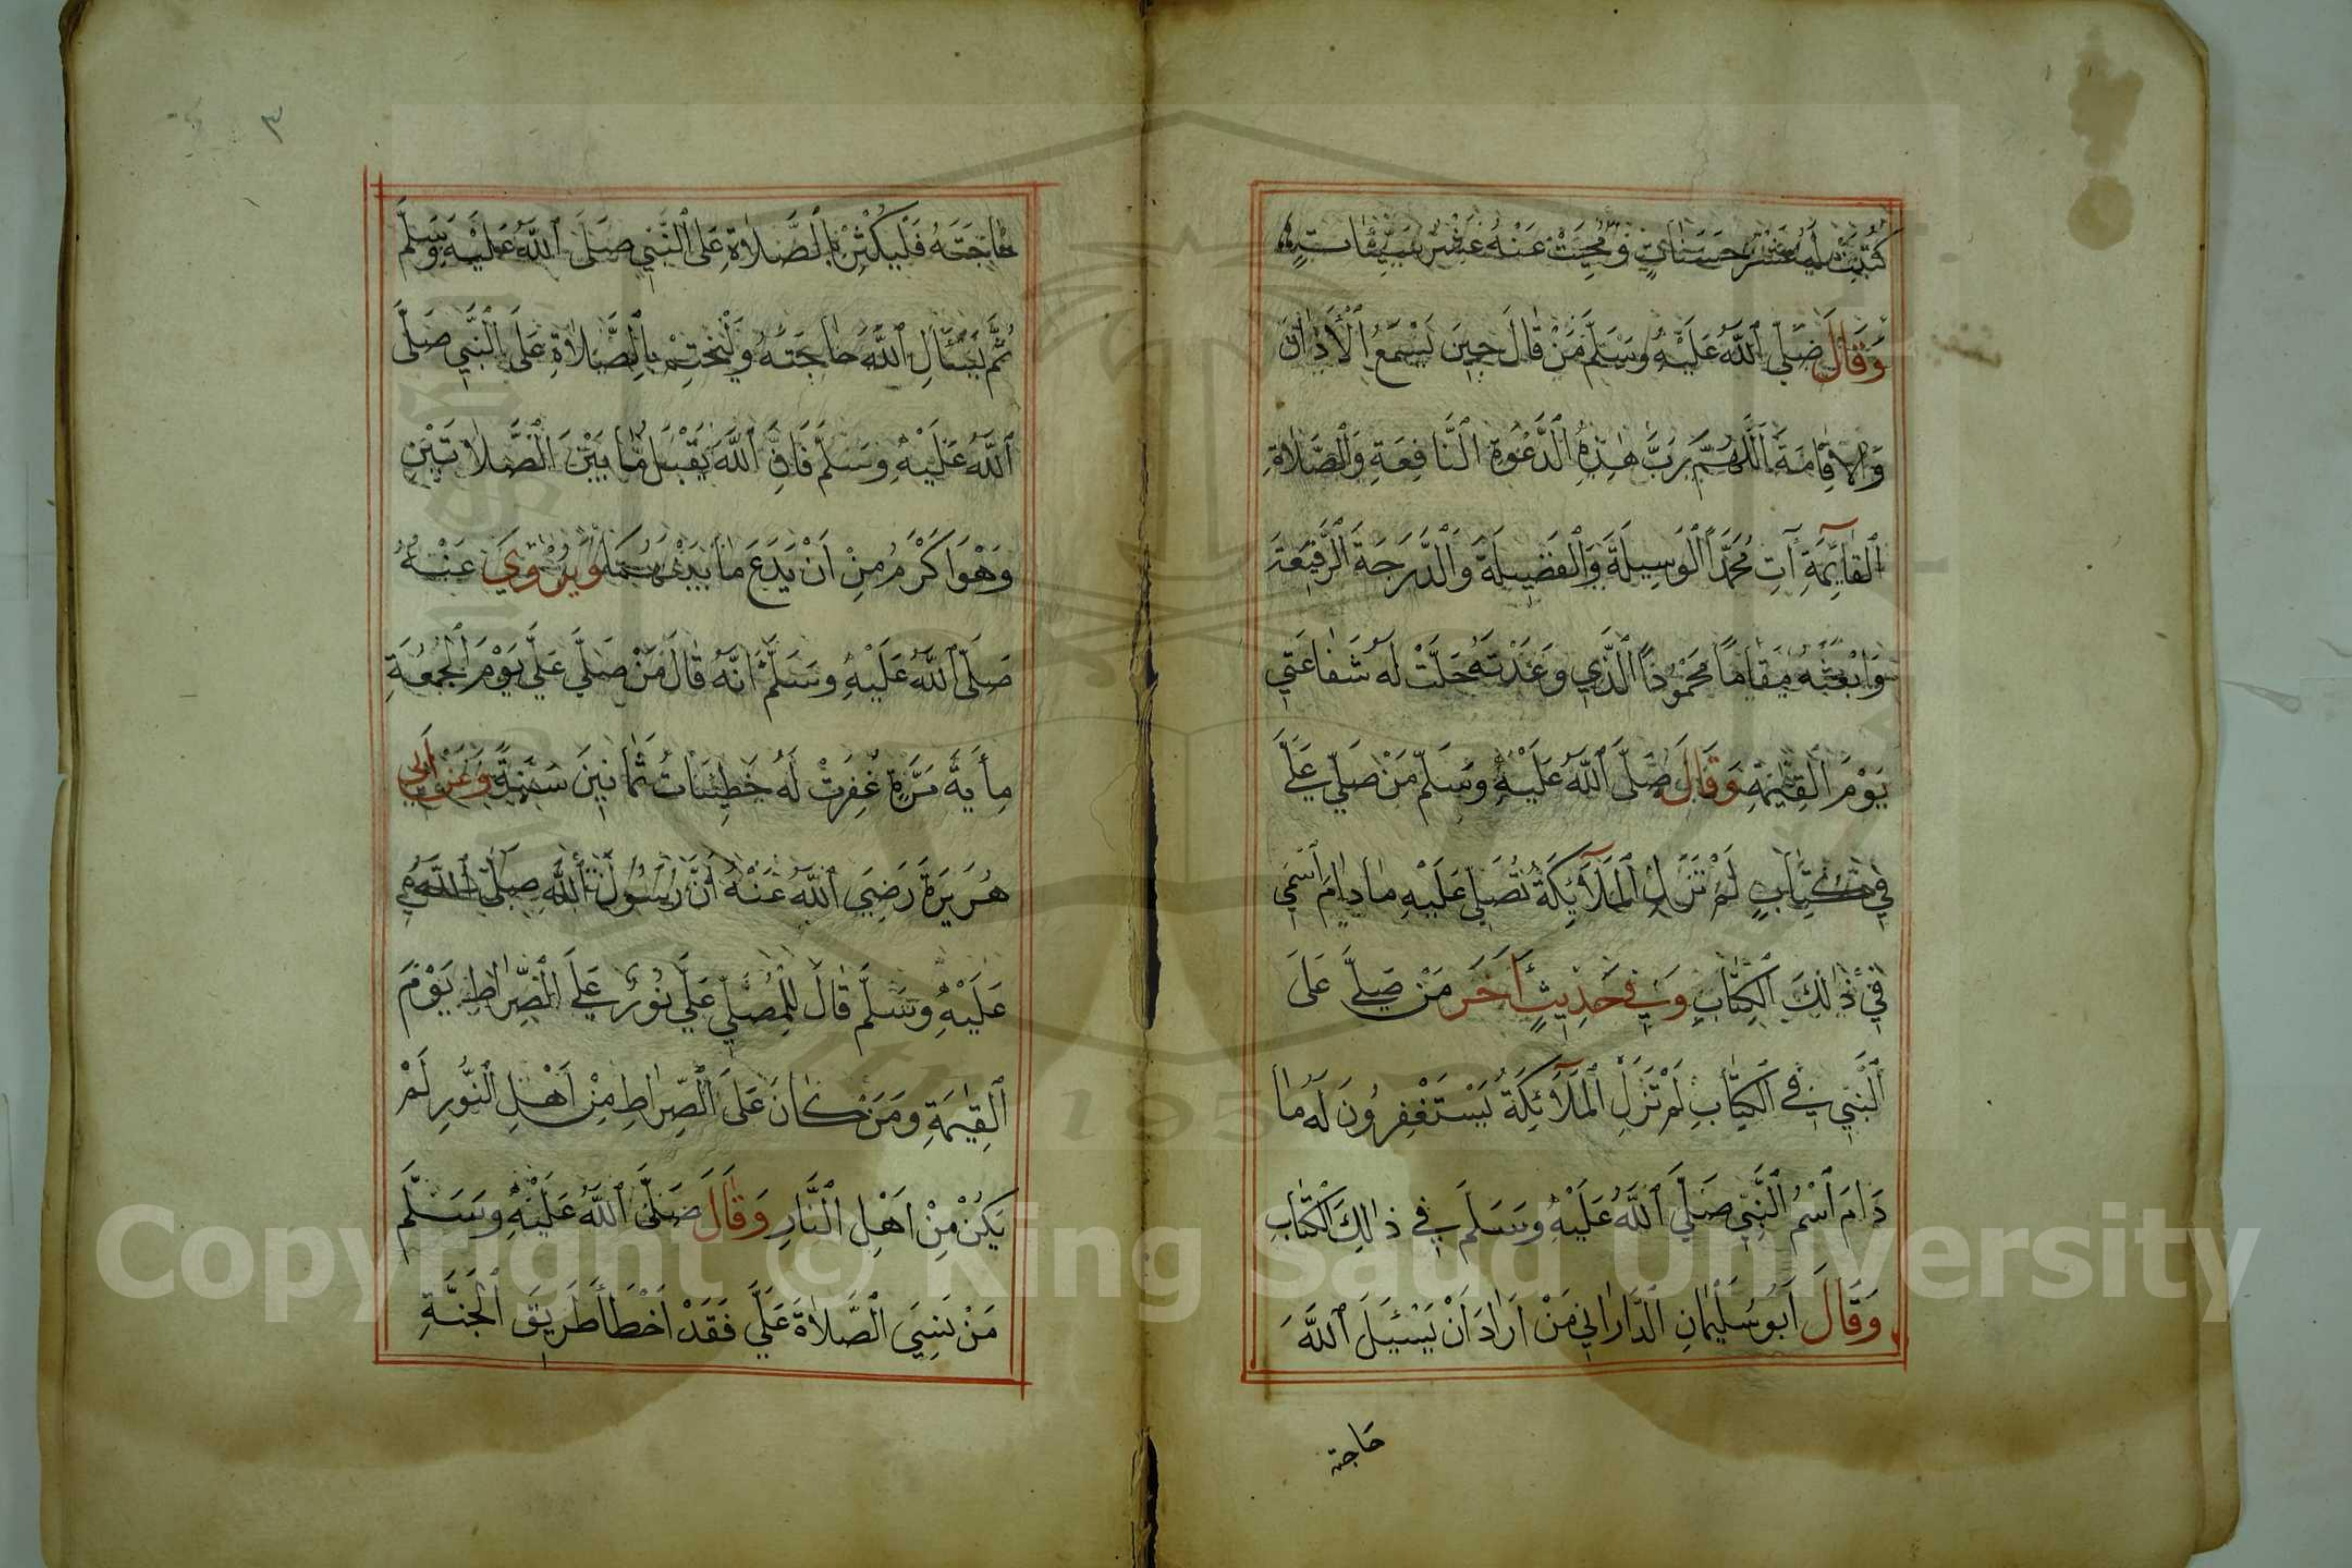 كُتِبَتْ لَهُ عَشْرُ حَسَنَاتٍ وَمُحِيَتْ عَنْهُ عَشْرُ سَيِّئَاتٍ
وَقَالَ صَلَّى ٱللَّهُ عَلَيْهِ وَسَلَّمَ مَنْ قَالَ حِينَ يَسْمَعُ ٱلْأَذَانَ
وَالْاِقَامَةَ اَللَّهُمَّ رَبَّ هٰذِهِ ٱلدَّعْوَةِ ٱلنَّافِعَةِ وَٱلصَّلَاةِ
ٱلْقَايِمَةِ آتِ مُحَمَّدًا ٱلْوَسِيلَةَ وَٱلْفَضِيلَةَ وَٱلدَّرَجَةَ ٱلرَّفِيعَةَ
وَابْعَثْهُ مَقَامًا مَحْمُودًا ٱلَّذِي وَعَدْتَهُ حَلَّتْ لَهُ شَفَاعَتِي
يَوْمَ ٱلْقِيٰمَةِ وَقَالَ صَلَّى ٱللَّهُ عَلَيْهِ وَسَلَّمَ مَنْ صَلَّي عَلَيَّ
فِي كِتَابٍ لَمْ تَزَلِ ٱلْمَلَآئِكَةُ تُصَلِّي عَلَيْهِ مَا دَامَ ٱسْمِي
فِي ذٰلِكَ ٱلْكِتَابِ وَفِي حَدِيثٍ آخَرَ مَنْ صَلَّي عَلَى
ٱلنَّبِيِّ فِي ٱلْكِتَابِ لَمْ تَزَلِ ٱلْمَلَآئِكَةُ يَسْتَغْفِرُونَ لَهُ مَا
دَامَ ٱسْمُ ٱلنَّبِيِّ صَلَّي ٱللَّهُ عَلَيْهِ وَسَلَّمَ فِي ذٰلِكَ ٱلْكِتَابِ
وَقَالَ اَبُو سُلَيْمَانِ ٱلدَّارَانِي مَنْ اَرَادَ اَنْ يَسْئَلَ ٱللَّهَ
حاجته
٣
حَاجَتَهُ فَلْيُكْثِرْ بِالصَّلَاةِ عَلَى ٱلنَّبِيِّ صَلَّى ٱللَّهُ عَلَيْهِ وَسَلَّمَ
ثُمَّ يَسْئَالِ ٱللَّهَ حَاجَتَهُ وَلْيَخْتِمْ بِالصَّلَاةِ عَلَى ٱلنَّبِيِّ صَلَّى
ٱللَّهُ عَلَيْهِ وَسَلَّمَ فَاِنَّ ٱللَّهَ يَقْبَلُ مَا بَيْنَ ٱلصَّلَاتَيْنِ
وَهْوَ اَكْرَمُ مِنْ اَنْ يَدَعَ مَا بَيْنَهُمَا وَيُرْوٰي عَنْهُ
صَلَّى ٱللَّهُ عَلَيْهِ وَسَلَّمَ اَنَّهُ قَالَ مَنْ صَلَّي عَلَيَّ يَوْمَ ٱلْجُمُعَةِ
مِأيَةَ مَرَّةٍ غُفِرَتْ لَهُ خَطِيئَاتُ ثَمَانِينَ سَنَةً وَعَنْ اَبِي
هُرَيْرَةَ رَضِيَ ٱللَّهُ عَنْهُ أَنَّ رَسُولَ ٱللَّهِ صَلَّى ٱللَّهُ
عَلَيْهِ وَسَلَّمَ قَالَ لِلْمُصَلِّي عَلَيَّ نُورٌ عَلَى ٱلصِّرَاطِ يَوْمَ
ٱلْقِيٰمَةِ وَمَنْ كَانَ عَلَى ٱلصِّرَاطِ مِنْ اَهْلِ ٱلنُّورِ لَمْ
يَكُنْ مِنْ اَهْلِ ٱلنَّارِ وَقَالَ صَلَّى ٱللَّهُ عَلَيْهِ وَسَلَّمَ
مَنْ نَسِيَ ٱلصَّلَاةَ عَلَيَّ فَقَدْ اَخْطَأَ طَرِيقَ ٱلْجَنَّةِ
Copyright © King Saud University